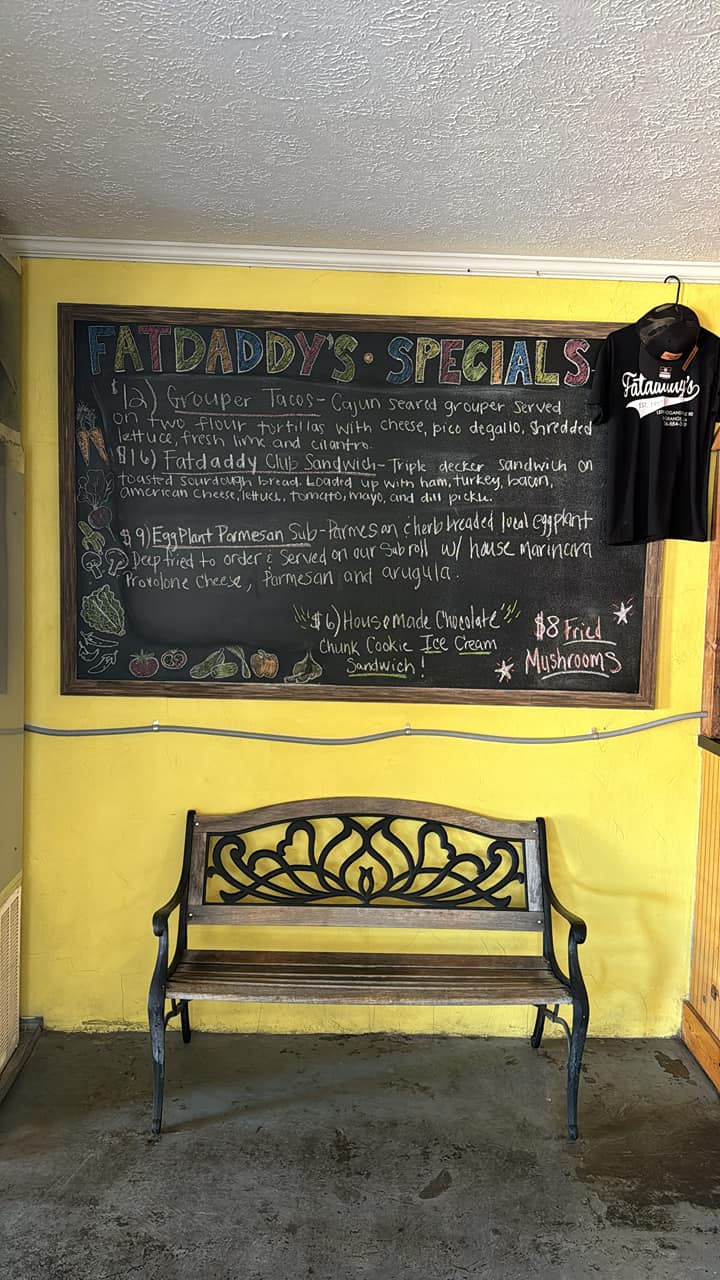 FATDADDY'S · SPECIALS
$12) Grouper Tacos - Cajun seared grouper served
on two flour tortillas with cheese, pico degallo, shredded
lettuce, fresh lime and cilantro.
$16) Fatdaddy Club Sandwich - Triple decker sandwich on
toasted sourdough bread. Loaded up with ham, turkey, bacon,
american cheese, lettuce, tomato, mayo, and dill pickle.
$9) EggPlant Parmesan Sub - Parmesan & herb breaded local eggplant
Deep fried to order & Served on our Sub roll w/ house marinara
Provolone Cheese, Parmesan and arugula.
$6) Housemade Chocolate
Chunk Cookie Ice Cream
Sandwich!
$8 Fried
Mushrooms
Fatdaddy's